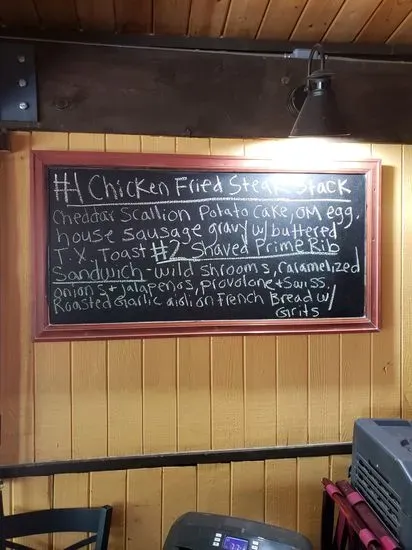 #1 Chicken Fried Steak Stack
Cheddar Scallion Potato Cake, OM egg.
house sausage gravy w/ buttered
T.X. Toast #2 Shaved Prime Rib
Sandwich - wild shrooms, caramelized
onions + Jalapenos, provolone + Swiss
Roasted Garlic aioli on French Bread w/
Grits